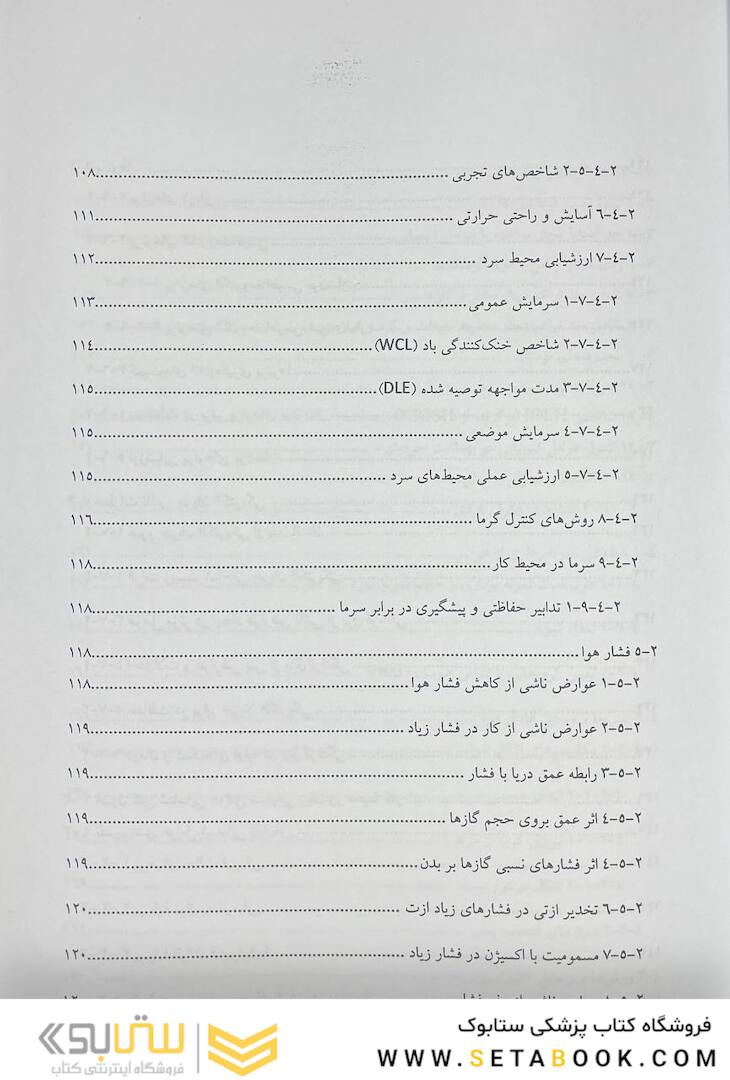 ۲-۴-۵-۲ شاخص‌های تجربی ........ ۱۰۸
۲-۴-۶ آسایش و راحتی حرارتی ........ ۱۱۱
۲-۴-۷ ارزشیابی محیط سرد ........ ۱۱۲
۲-۴-۷-۱ سرمایش عمومی ........ ۱۱۳
۲-۴-۷-۲ شاخص خنک‌کنندگی باد (WCL) ........ ۱۱۴
۲-۴-۷-۳ مدت مواجهه توصیه شده (DLE) ........ ۱۱۵
۲-۴-۷-۴ سرمایش موضعی ........ ۱۱۵
۲-۴-۷-۵ ارزشیابی عملی محیط‌های سرد ........ ۱۱۵
۲-۴-۸ روش‌های کنترل گرما ........ ۱۱۶
۲-۴-۹ سرما در محیط کار ........ ۱۱۸
۲-۴-۹-۱ تدابیر حفاظتی و پیشگیری در برابر سرما ........ ۱۱۸
۲-۵ فشار هوا ........ ۱۱۸
۲-۵-۱ عوارض ناشی از کاهش فشار هوا ........ ۱۱۸
۲-۵-۲ عوارض ناشی از کار در فشار زیاد ........ ۱۱۹
۲-۵-۳ رابطه عمق دریا با فشار ........ ۱۱۹
۲-۵-۴ اثر عمق بروی حجم گازها ........ ۱۱۹
۲-۵-۴ اثر فشارهای نسبی گازها بر بدن ........ ۱۱۹
۲-۵-۶ تخدیر ازتی در فشارهای زیاد ازت ........ ۱۲۰
۲-۵-۷ مسمومیت با اکسیژن در فشار زیاد ........ ۱۲۰
فروشگاه کتاب پزشکی ستابوک
WWW.SETABOOK.COM
ستابوک
فروشگاه اینترنتی کتاب